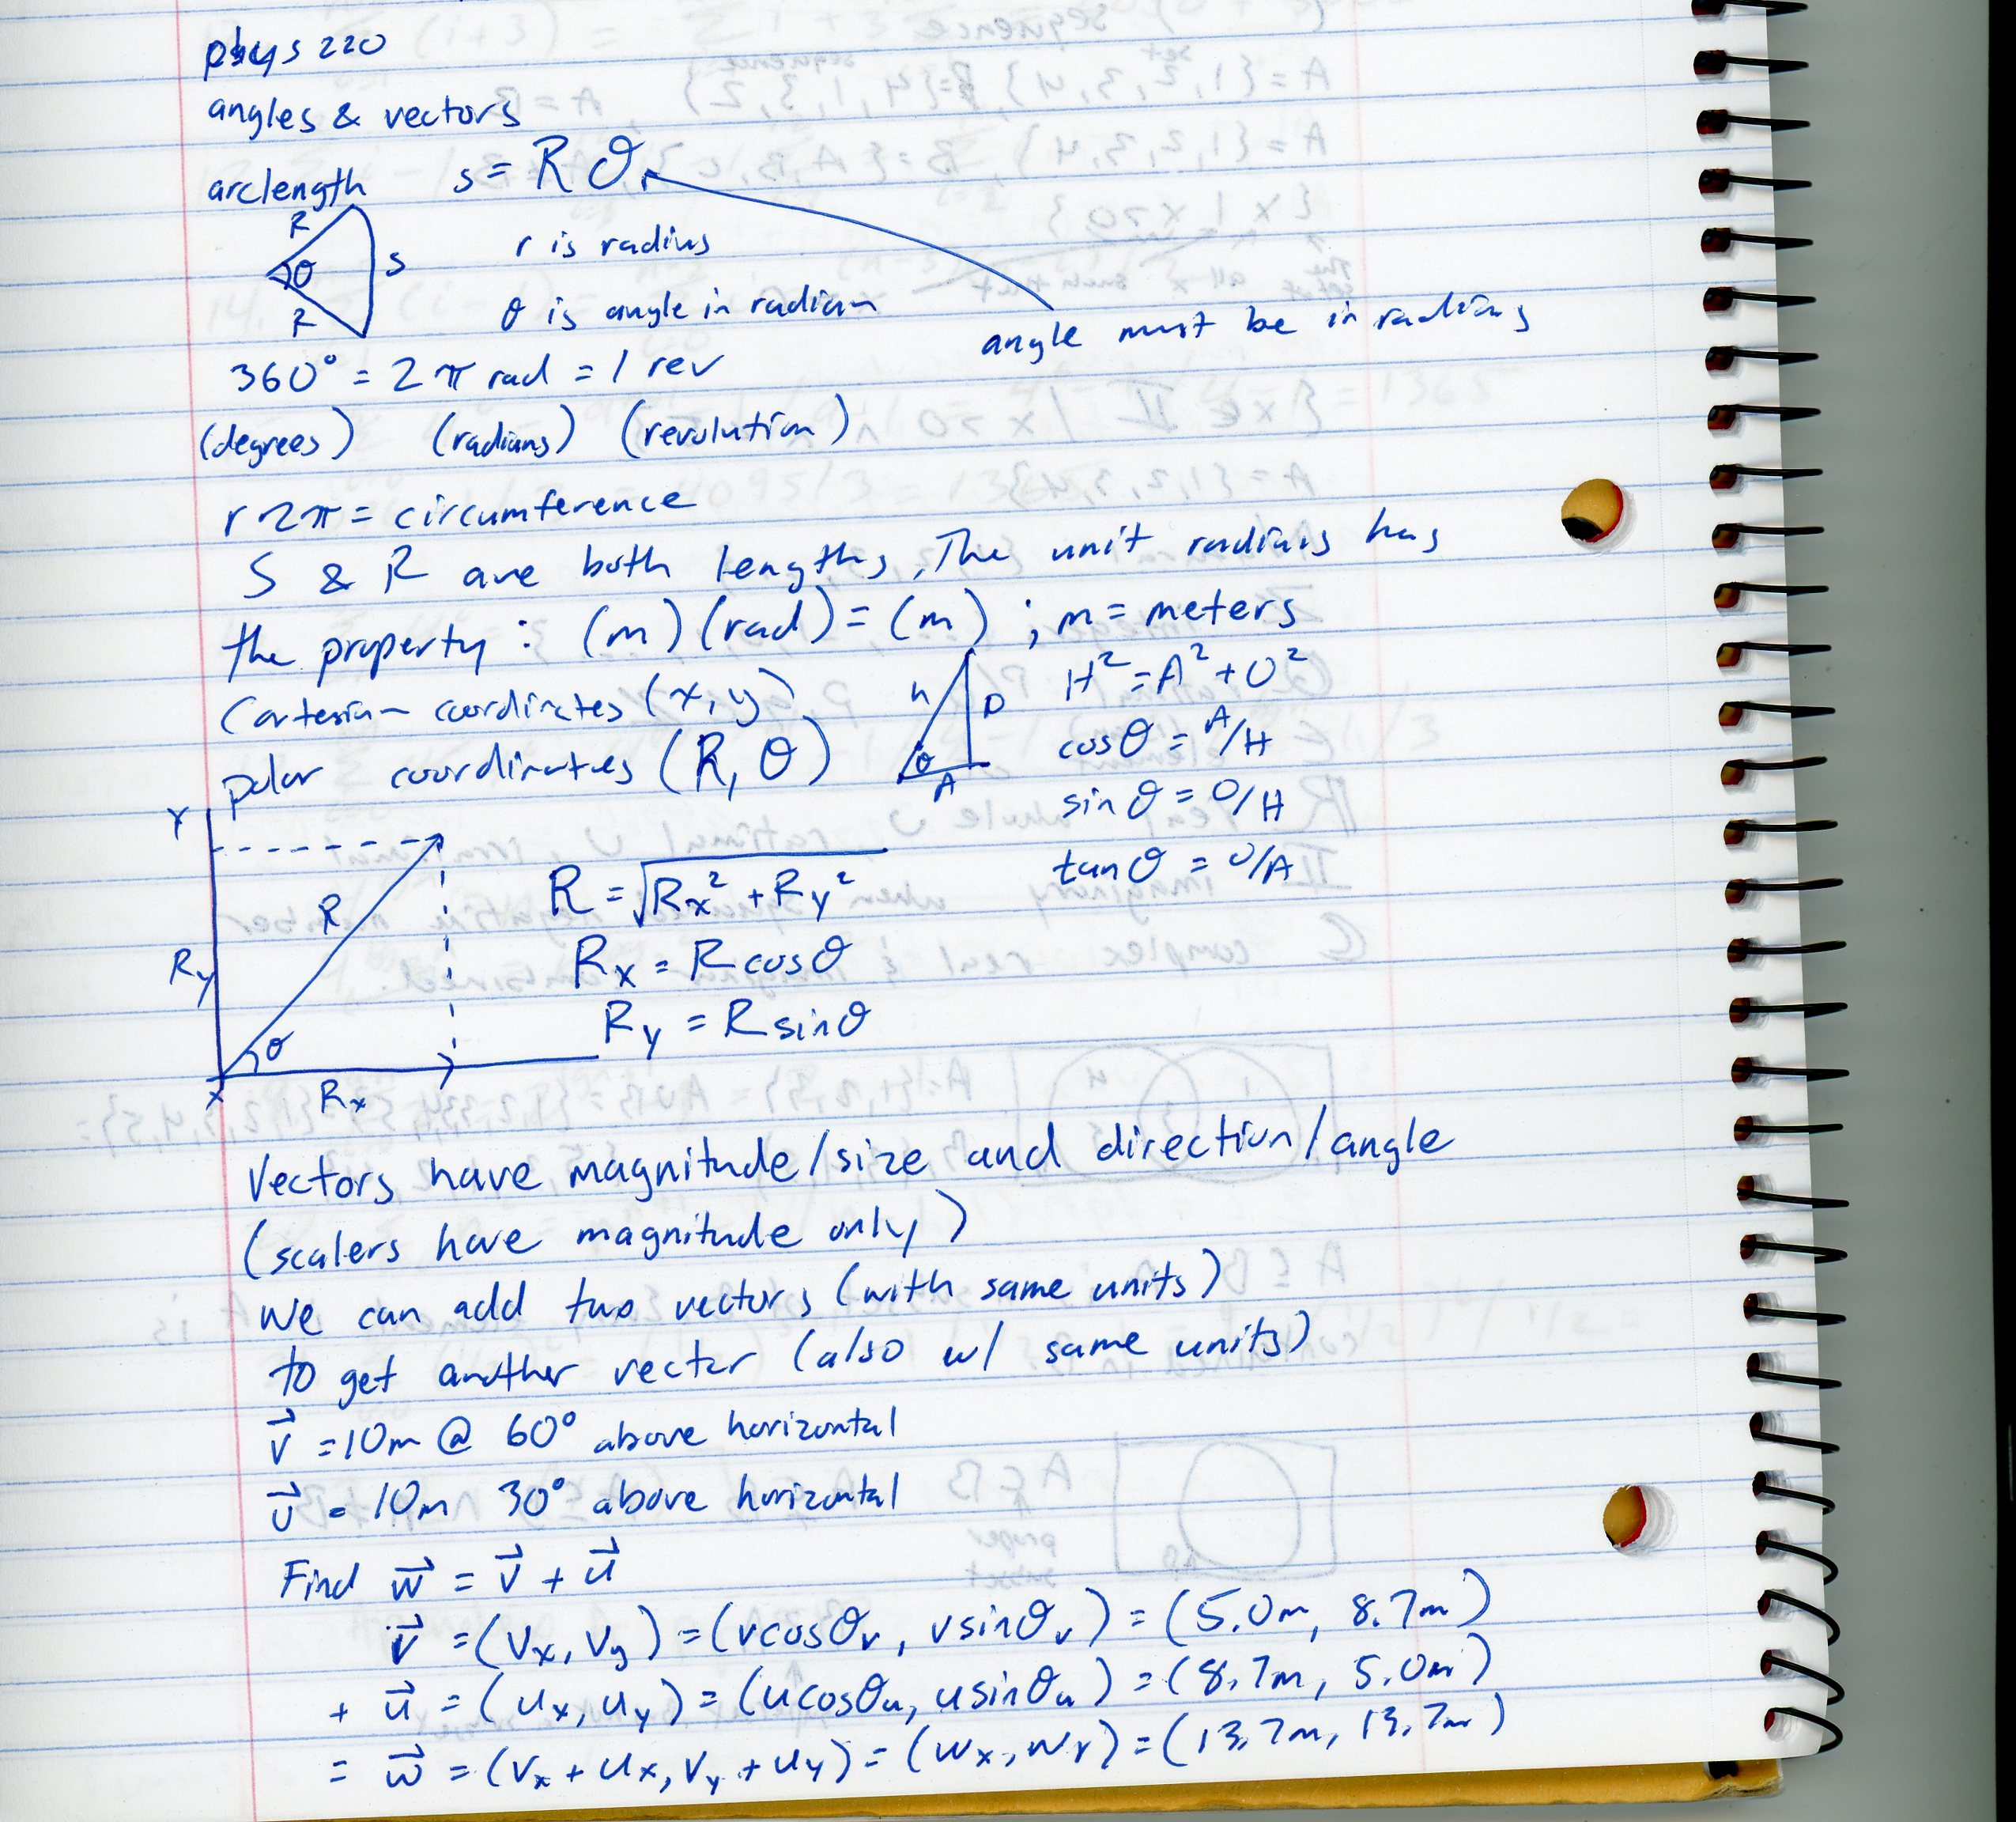 phys 220
angles & vectors
arclength s = Rθ
R
θ
s
R
r is radius
θ is angle in radian
angle must be in radians
360° = 2π rad = 1 rev
(degrees) (radians) (revolution)
r2π = circumference
S & R are both lengths, The unit radians has
the property: (m)(rad) = (m) ; m = meters
Cartesian coordinates (x, y)
polar coordinates (R, θ)
h
O
θ
A
H² = A² + O²
cosθ = A/H
sinθ = O/H
tanθ = O/A
Y
R
Ry
θ
x
Rx
R = √Rx² + Ry²
Rx = Rcosθ
Ry = Rsinθ
Vectors have magnitude/size and direction/angle
(scalers have magnitude only)
We can add two vectors (with same units)
to get another vector (also w/ same units)
v⃗ = 10m @ 60° above horizontal
u⃗ = 10m 30° above horizontal
Find w⃗ = v⃗ + u⃗
v⃗ = (Vx, Vy) = (vcosθv, vsinθv) = (5.0m, 8.7m)
+ u⃗ = (ux, uy) = (ucosθu, usinθu) = (8.7m, 5.0m)
= w⃗ = (Vx + ux, Vy + uy) = (wx, wy) = (13.7m, 13.7m)